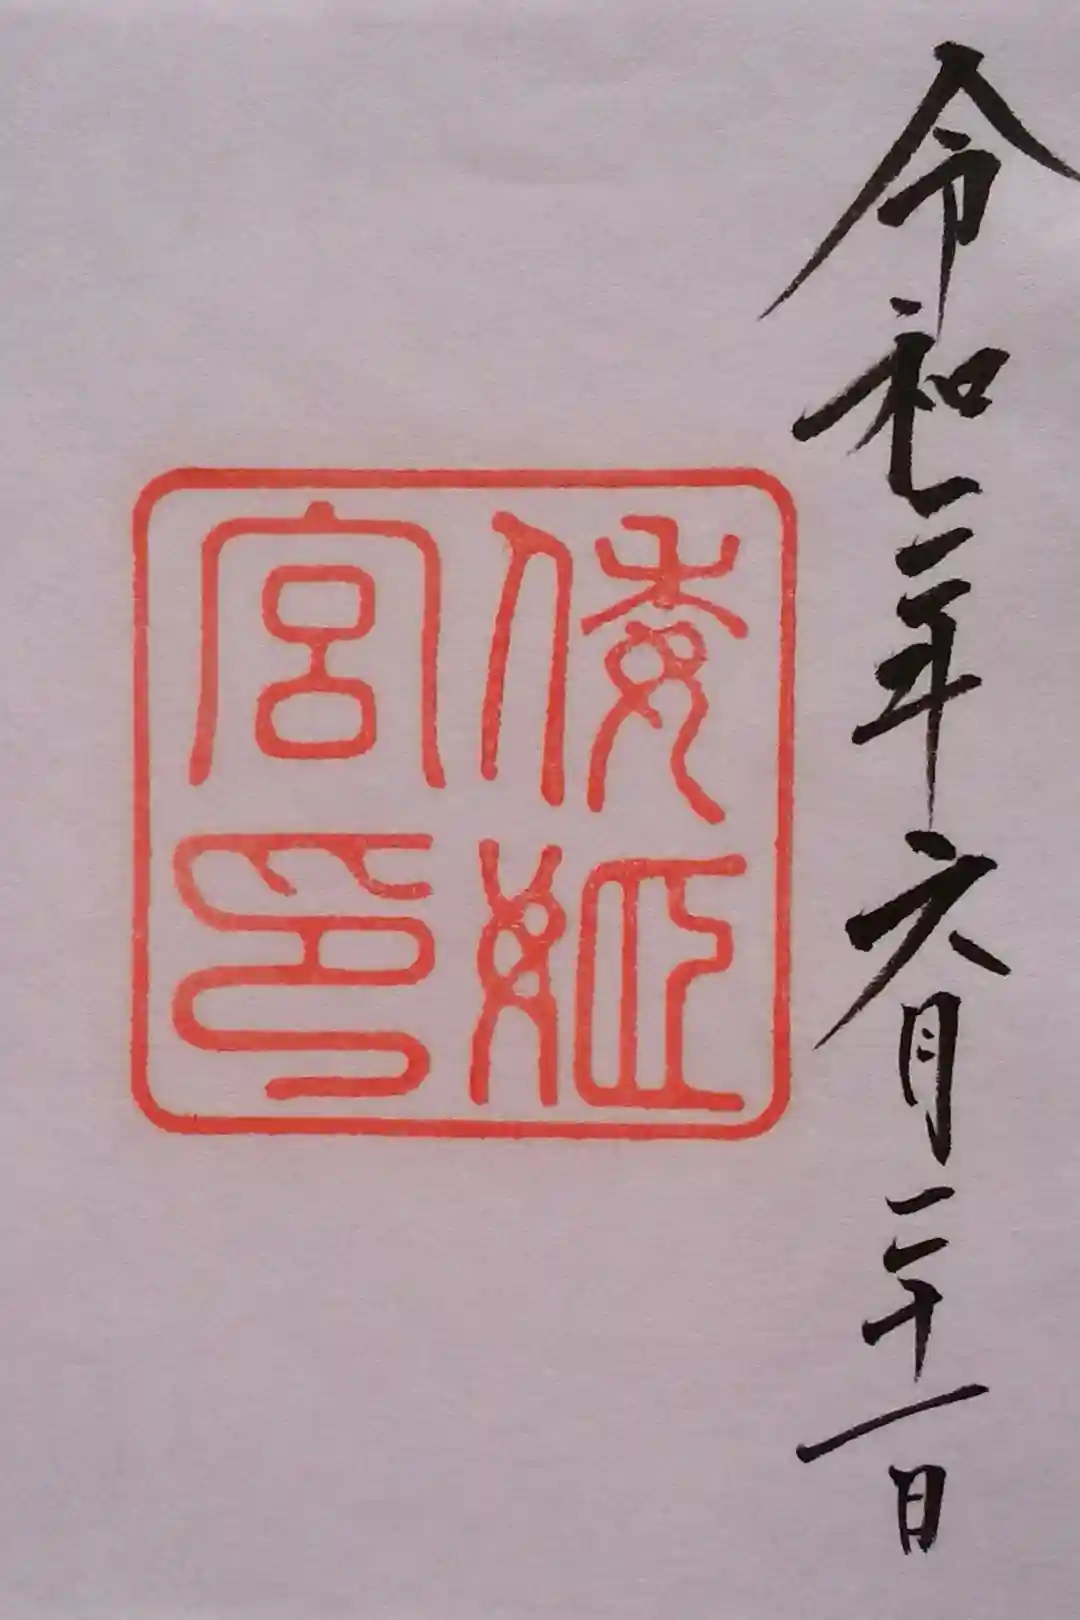 令和三年六月二十一日
倭姫
宮印